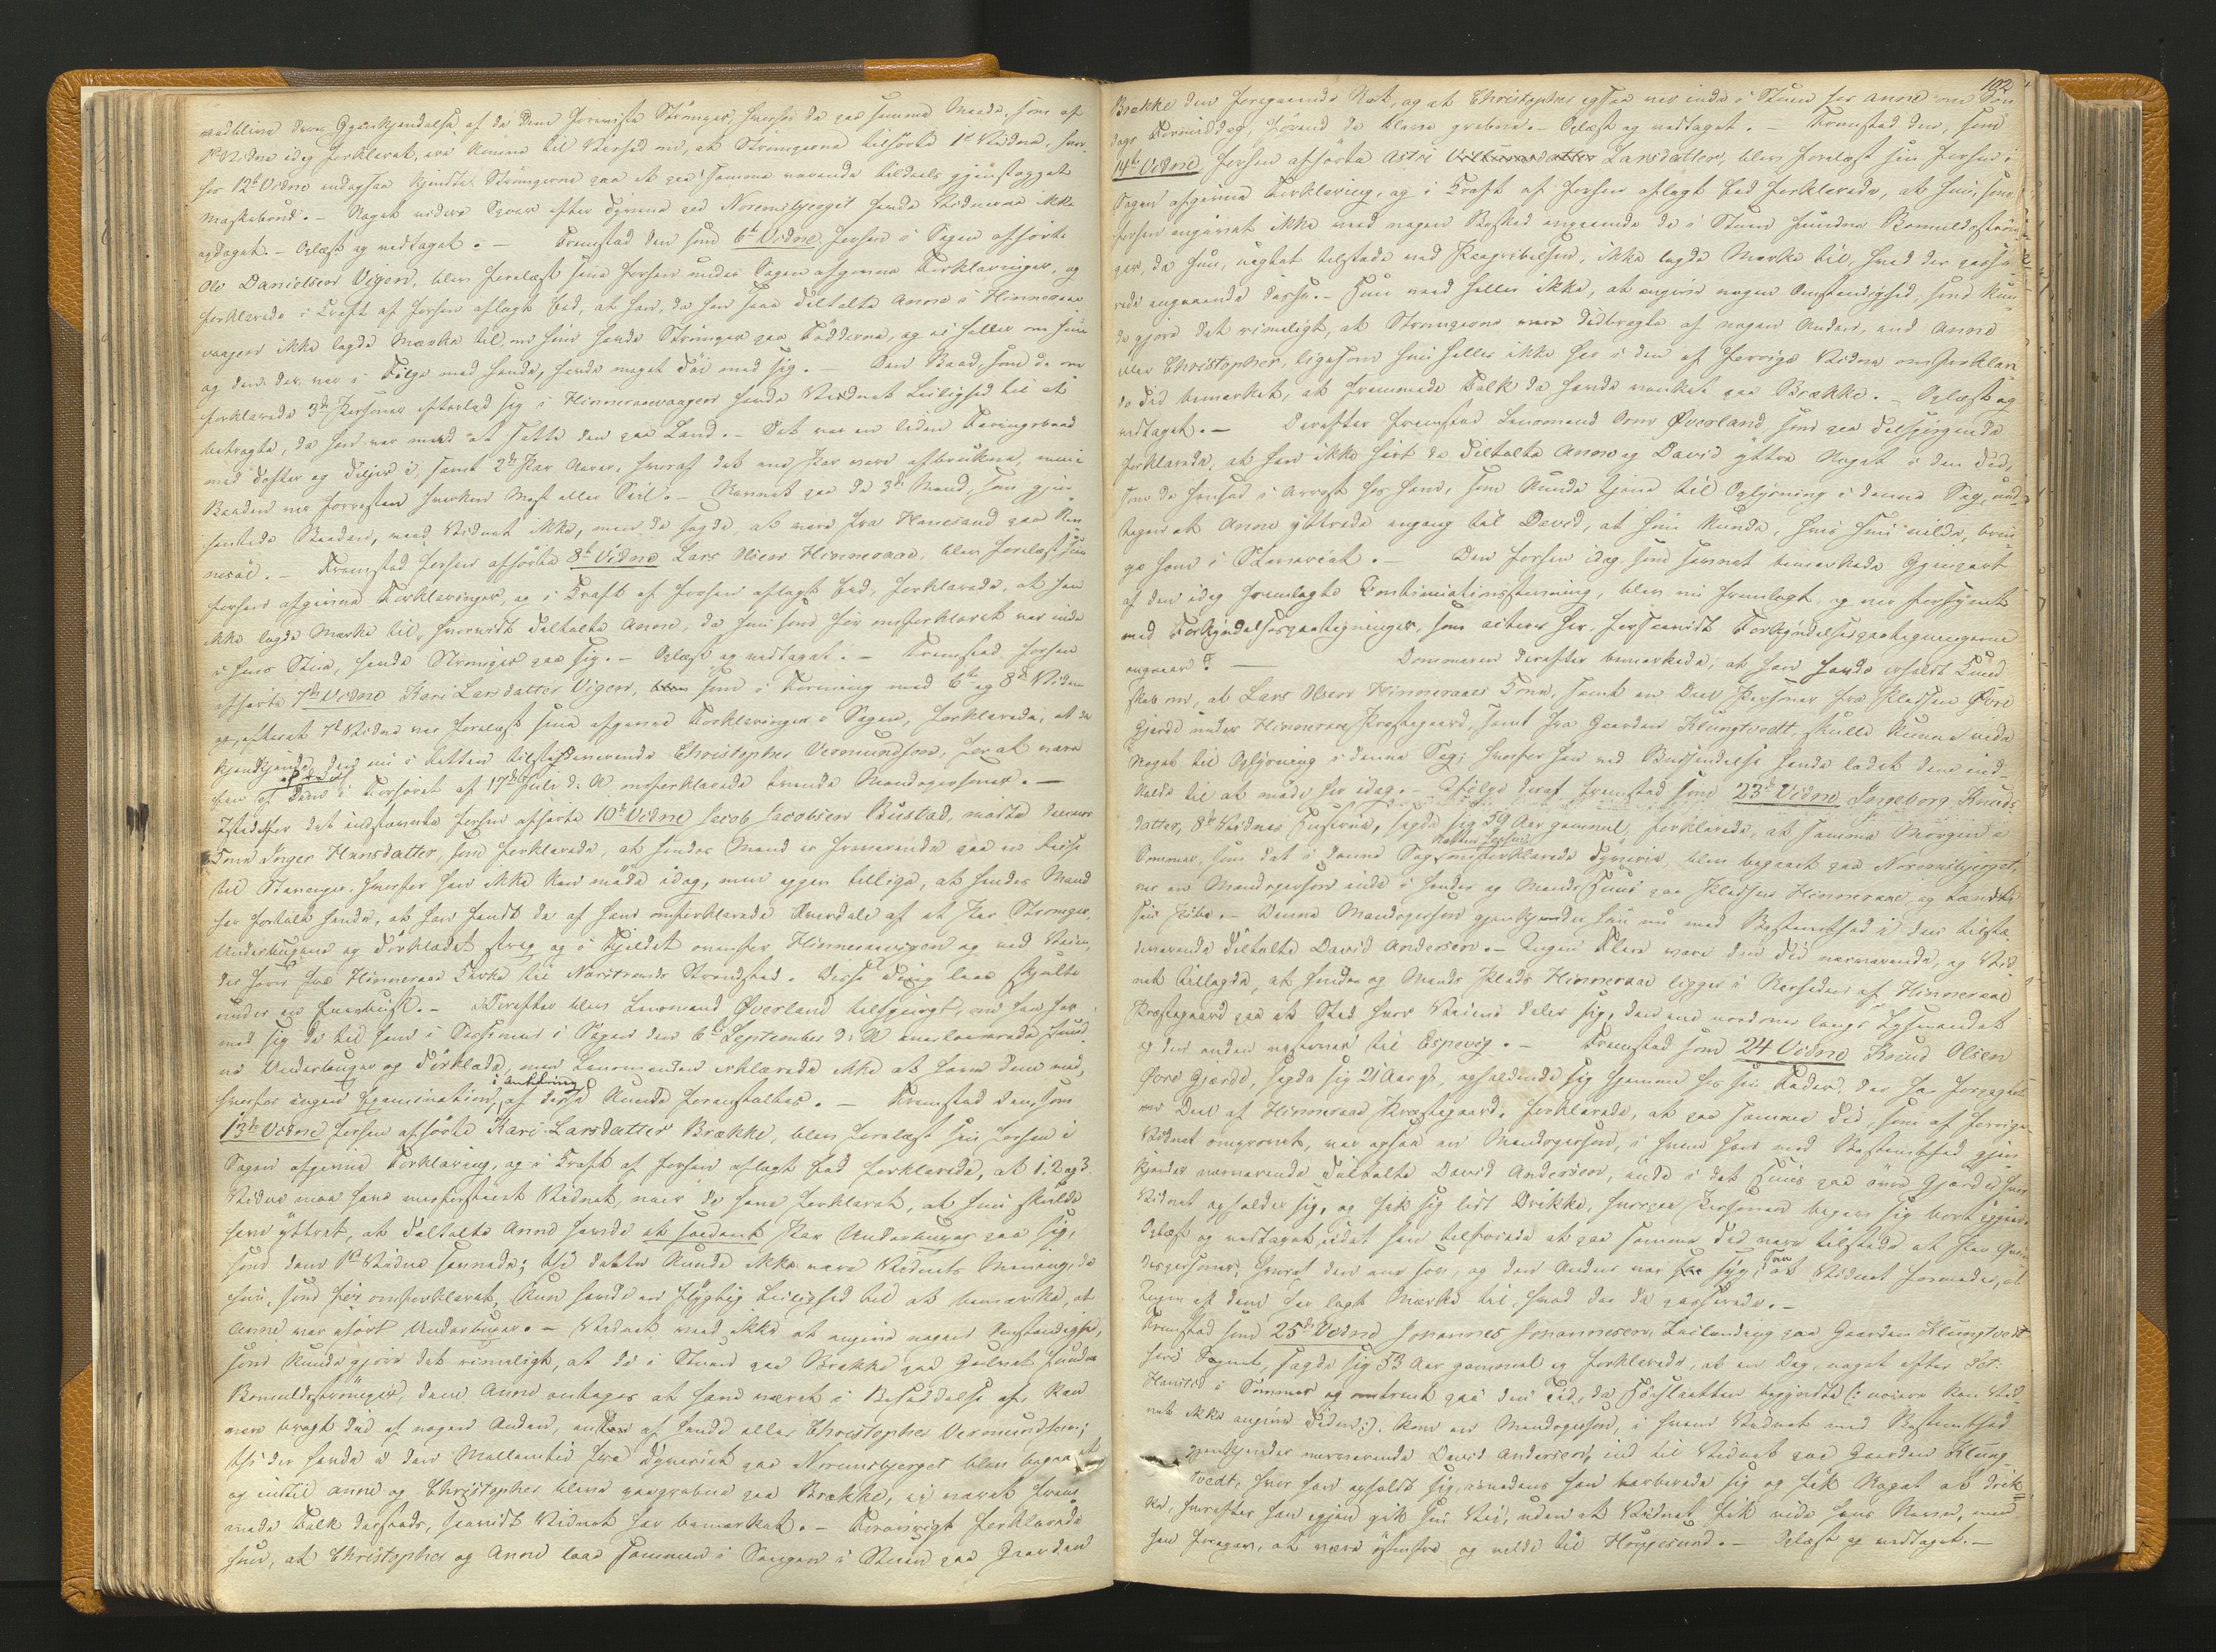 vedblive deres Gjenkjendelse af de dem foreviste Strømper, hvorfor de paa samme Maade, som af
1ste Vidne idag forklaret, ere komne til Kundskab om, at Strømperne tilhørte 1ste Vidne, hvor-
for 12te Vidne endogsaa kjendte Strømperne paa et paa samme værende tildeels gjenstoppet
Maskebrud. – Noget videre Spor efter Tyveriet paa Norumsbjerget havde Vidnerne ikke
opdaget. – Oplæst og vedtaget. – Fremstod den som 6te Vidne forhen i Sagen afhørte
Ole Danielsen Vigen, blev forelæst sine forhen under Sagen afgivne Forklaringer, og
forklarede i Kraft af forhen aflagt Eed, at han, da han saae Tiltalte Anne i Hinneraae
vaagen ikke lagde Mærke til om hun havde Strømper paa Fødderne, og ei heller om hun
og den der var i Følge med hende, havde noget Tøi med sig. – Den Baad, som de om
forklarede 3de Personer efterlod sig i Hinneraavaagen havde Vidnet Leilighed til at
betragte, da han var med at sætte den paa Land. – Det var en liden Færingsbaad
med Tofter og Tiljer i, samt 2de Par Aarer, hvoraf det ene Par vare afbrukne, men i
Baaden var forresten hverken Mast eller Seil. – Navnet paa de 3de Mænd, som gjen-
hentede Baaden, veed Vidnet ikke, men de sagde, at være fra Hanesand paa Ren-
nesøe. – Fremstod forhen afhørte 8de Vidne Lars Olsen Hinneraae, blev forelæst sine
forhen afgivne Forklaringer, og i Kraft af forhen aflagt Eed, forklarede, at han
ikke lagde Mærke til, hvorvidt Tiltalte Anne, da hun som før omforklaret var inde
i hans Stue, havde Strømper paa sig. – Oplæst og vedtaget. – Fremstod forhen
afhørte 7de Vidne Kari Larsdatter Vigen, som i Forening med 6te og 8de Vidne
og, efterat 7de Vidne var forelæst sine afgivne Forklaringer i Sagen, forklarede, at de
kjendte den nu i Retten tilstedeværende Christopher Vermundsen, for at være
een af de i Forhøret af 17de Juli d. A. omforklarede tvende Mandspersoner. –
Istedetfor det indstævnte forhen afhørte 10de Vidne Jacob Jacobsen Bustad, mødte dennes
Kone Inger Hansdatter, som forklarede, at hendes Mand er fraværende paa en Reise
til Stavanger, hvorfor han ikke kan møde idag, men opgav tillige, at hendes Mand
har fortalt hende, at han fandt de af ham omforklarede Overdele af et Par Strømper,
Underbuxerne og Tørklædet strax og i Fjeldet ovenfor Hinneraavaagen og ved Veien,
der fører fra Hinneraae Kirke til Narstrands Strandsted. Disse Ting laae skjulte
under en Enerbusk. – Derefter blev Lensmand Qverland tilspurgt, om han har
med sig de til ham i Sessionen i Sagen den 6te September d. A. overleverede fund-
ne Underbuxer og Tørklæde, men Lensmanden erklærede ikke at have dem med,
hvorfor ingen Examination i Anledning af disse kunde foranstaltes. – Fremstod den, som
13de Vidne forhen afhørte Kari Larsdatter Brække, blev forelæst sin forhen i
Sagen afgivne Forklaring, og i Kraft af forhen aflagt Eed forklarede, at 1, 2 og 3
Vidne maa have misforstaaet Vidnet, naar de have forklaret, at hun skulde
have yttret, at Tiltalte Anne havde et saadant Par Underbuxer paa sig,
som dem 1ste Vidne savnede; thi dette kunde ikke være Vidnets Mening, da
hun, som før omforklaret, kun havde en flygtig Leilighed til at bemærke, at
Anne var iført Underbuxer. – Vidnet veed ikke at angive nogen Omstændighed,
som kunde gjøre det rimeligt, at de i Stuen paa Brække paa Gulvet fundne
Bomuldsstrømper, dem Anne antages at have været i Besiddelse af, kan
være bragt did af nogen Anden, enten af hende eller Christopher Vermundsen;
thi der havde i den Mellemtid fra Tyveriet paa Norumsbjerget blev begaaet
og indtil Anne og Christopher bleve paagrebne paa Brække, ei været frem-
mede Folk dersteds, saavidt Vidnet har bemærket. – Forøvrigt forklarede
hun, at Christopher og Anne laae sammen i Sengen i Stuen paa Gaarden
102
Brække den foregaaende Nat, og at Christopher ogsaa var inde i Stuen hos Anne om Søn-
dags Formiddag, førend de bleve grebne. – Oplæst og vedtaget. – Fremstod den, som
14de Vidne forhen afhørte Astri Villumsdatter Larsdatter, blev forelæst sin forhen i
Sagen afgivne Forklaring, og i Kraft af forhen aflagt Eed forklarede, at hun, som
forhen angivet ikke veed nogen Besked angaaende de i Stuen fundne Bomuldsstrøm-
per, da hun, uagtet tilstede ved Paagribelsen, ikke lagde Mærke til, hvad der passe-
rede angaaende disse. – Hun veed heller ikke, at angive nogen Omstændighed, som kun-
de gjøre det rimeligt, at Strømperne vare didbragte af nogen Anden, end Anne
eller Christopher, ligesom hun heller ikke har i den af forrige Vidne omforklare-
de Tid bemærket, at fremmede Folk da havde vanket paa Brække. – Oplæst og
vedtaget. – Derefter fremstod Lensmand Orm Qverland, som paa Tilspørgende
forklarede, at han ikke hørt de Tiltalte Anne og David yttre Noget i den Tid,
som de hensad i Arrest hos ham, som kunde tjene til Oplysning i denne Sag, und-
tagen at Anne yttrede engang til David, at hun kunde, hvis hun vilde, brin-
ge ham i Slaveriet. – Den forhen idag som savnet bemærkede Gjenpart
af den idag fremlagte Continuationsstevning, blev nu fremlagt og var forsynet
med Forkyndelsespaategninger, som acteres her, forsaavidt Forkyndelsespaategningerne
angaaer. – Dommeren derefter bemærkede, at han havde erholdt Kund-
skab om, at Lars Olsen Hinneraaes Kone, samt en Deel Personer fra Pladsen Øvre
Gjerde under Hinneraae Præstegaard, samt fra Gaarden Klungtvedt, skulle kunne vide
Noget til Oplysning i denne Sag; hvorfor han ved Budsendelse havde ladet dem ind-
kalde til at møde her idag. – Ifølge deraf fremstod som 23de Vidne Ingeborg Knuds-
datter, 8de Vidnes Hustrue, sagde sig 59 Aar gammel, forklarede, at samme Morgen i
Sommer, som det i denne Sag omforklarede Tyverie Natten forhen blev begaaet paa Norumsbjerget,
var en Mandsperson inde i hendes og Mands Huus paa Pladsen Hinneraae, og tændte
sin Pibe. – Denne Mandsperson gjenkjender hun nu med Bestemthed i den tilste-
deværende Tiltalte David Andersen. – Ingen Flere vare den Tid nærværende, og Vid-
net tillagde, at hendes og Mands Plads Hinneraae ligger i Nærheden af Hinneraae
Præstegaard paa et Sted hvor Veiene deler sig, den ene nordover langs Lysevandet
og den anden vestover til Espevig. – Fremstod som 24 Vidne Knud Olsen
Øvre Gjærde, sagde sig 21 Aar gl., opholdende sig hjemme hos sin Fader, der har forpagtet
en Deel af Hinneraae Præstegaard, forklarede, at paa samme Tid, som af forrige
Vidnet omprovet, var ogsaa en Mandsperson, i hvem han med Bestemthed gjen-
kjender nærværende Tiltalte David Andersen, inde i det Huus paa øvre Gjærde hvor
Vidnet opholder sig, og fik sig lidt Drikke, hvorpaa Personen begav sig bort igjen.
Oplæst og vedtaget, idet han tilføiede at paa samme Tid vare tilstede et Par Qvin-
despersoner, hvoraf den ene sov, og den Anden var syg, saa at Vidnet formeder, at
Ingen af dem har lagt Mærke til hvad der da passerede. –
Fremstod som 25de Vidne Johannes Johannesen, Leilænding paa Gaarden Klungtvedt
heri Sognet, sagde sig 53 Aar gammel og forklarede, at en Dag, noget efter St:
Hanstid i Sommer og omtrent paa den Tid, da Høeslaatten begyndte (: nøiere kan Vid-
net ikke angive Tiden :). kom en Mandsperson, i hvem Vidnet med Bestemthed
gjenkjender nærværende David Andersen, ind til Vidnet paa Gaarden Klung-
tvedt, hvor han opholdt sig, imedens han barberede sig og fik Noget at drik-
ke, hvorefter han igjen gik sin Vei, uden at Vidnet fik vide hans Navn, men
han foregav, at være østenfra og vilde til Hougesund. – Oplæst og vedtaget. –